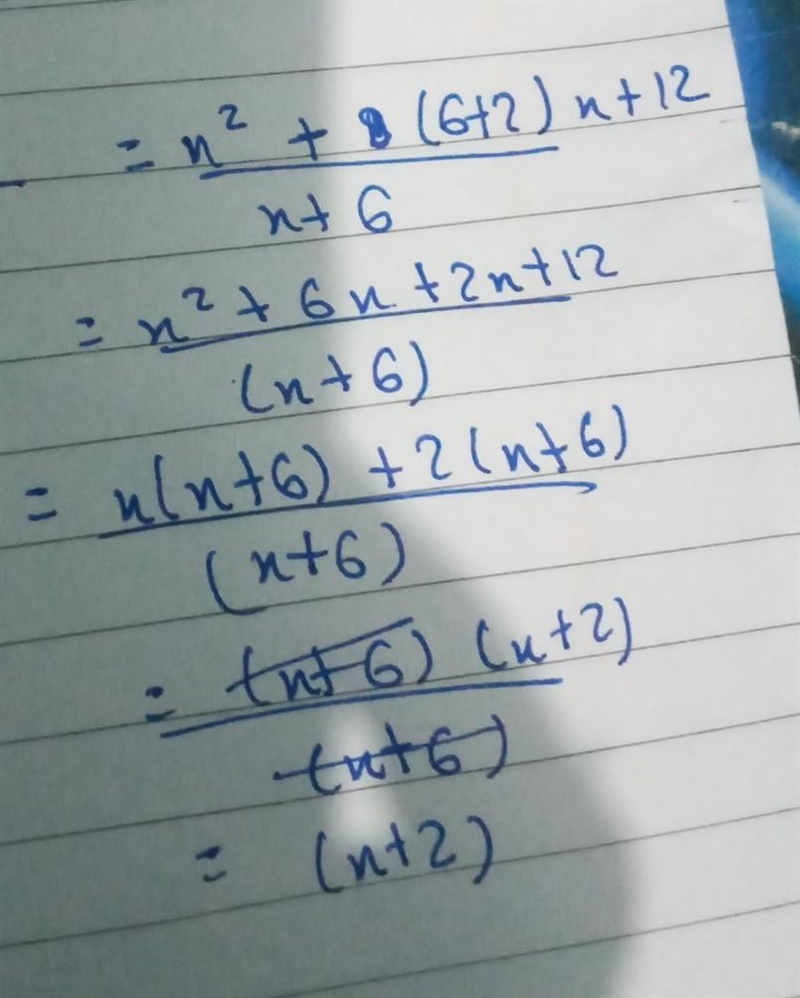 = n² + (6+2) n+12
n+6
= n² + 6n + 2n+12
(n+6)
= n(n+6) + 2(n+6)
(n+6)
= (n+6) (n+2)
(n+6)
= (n+2)